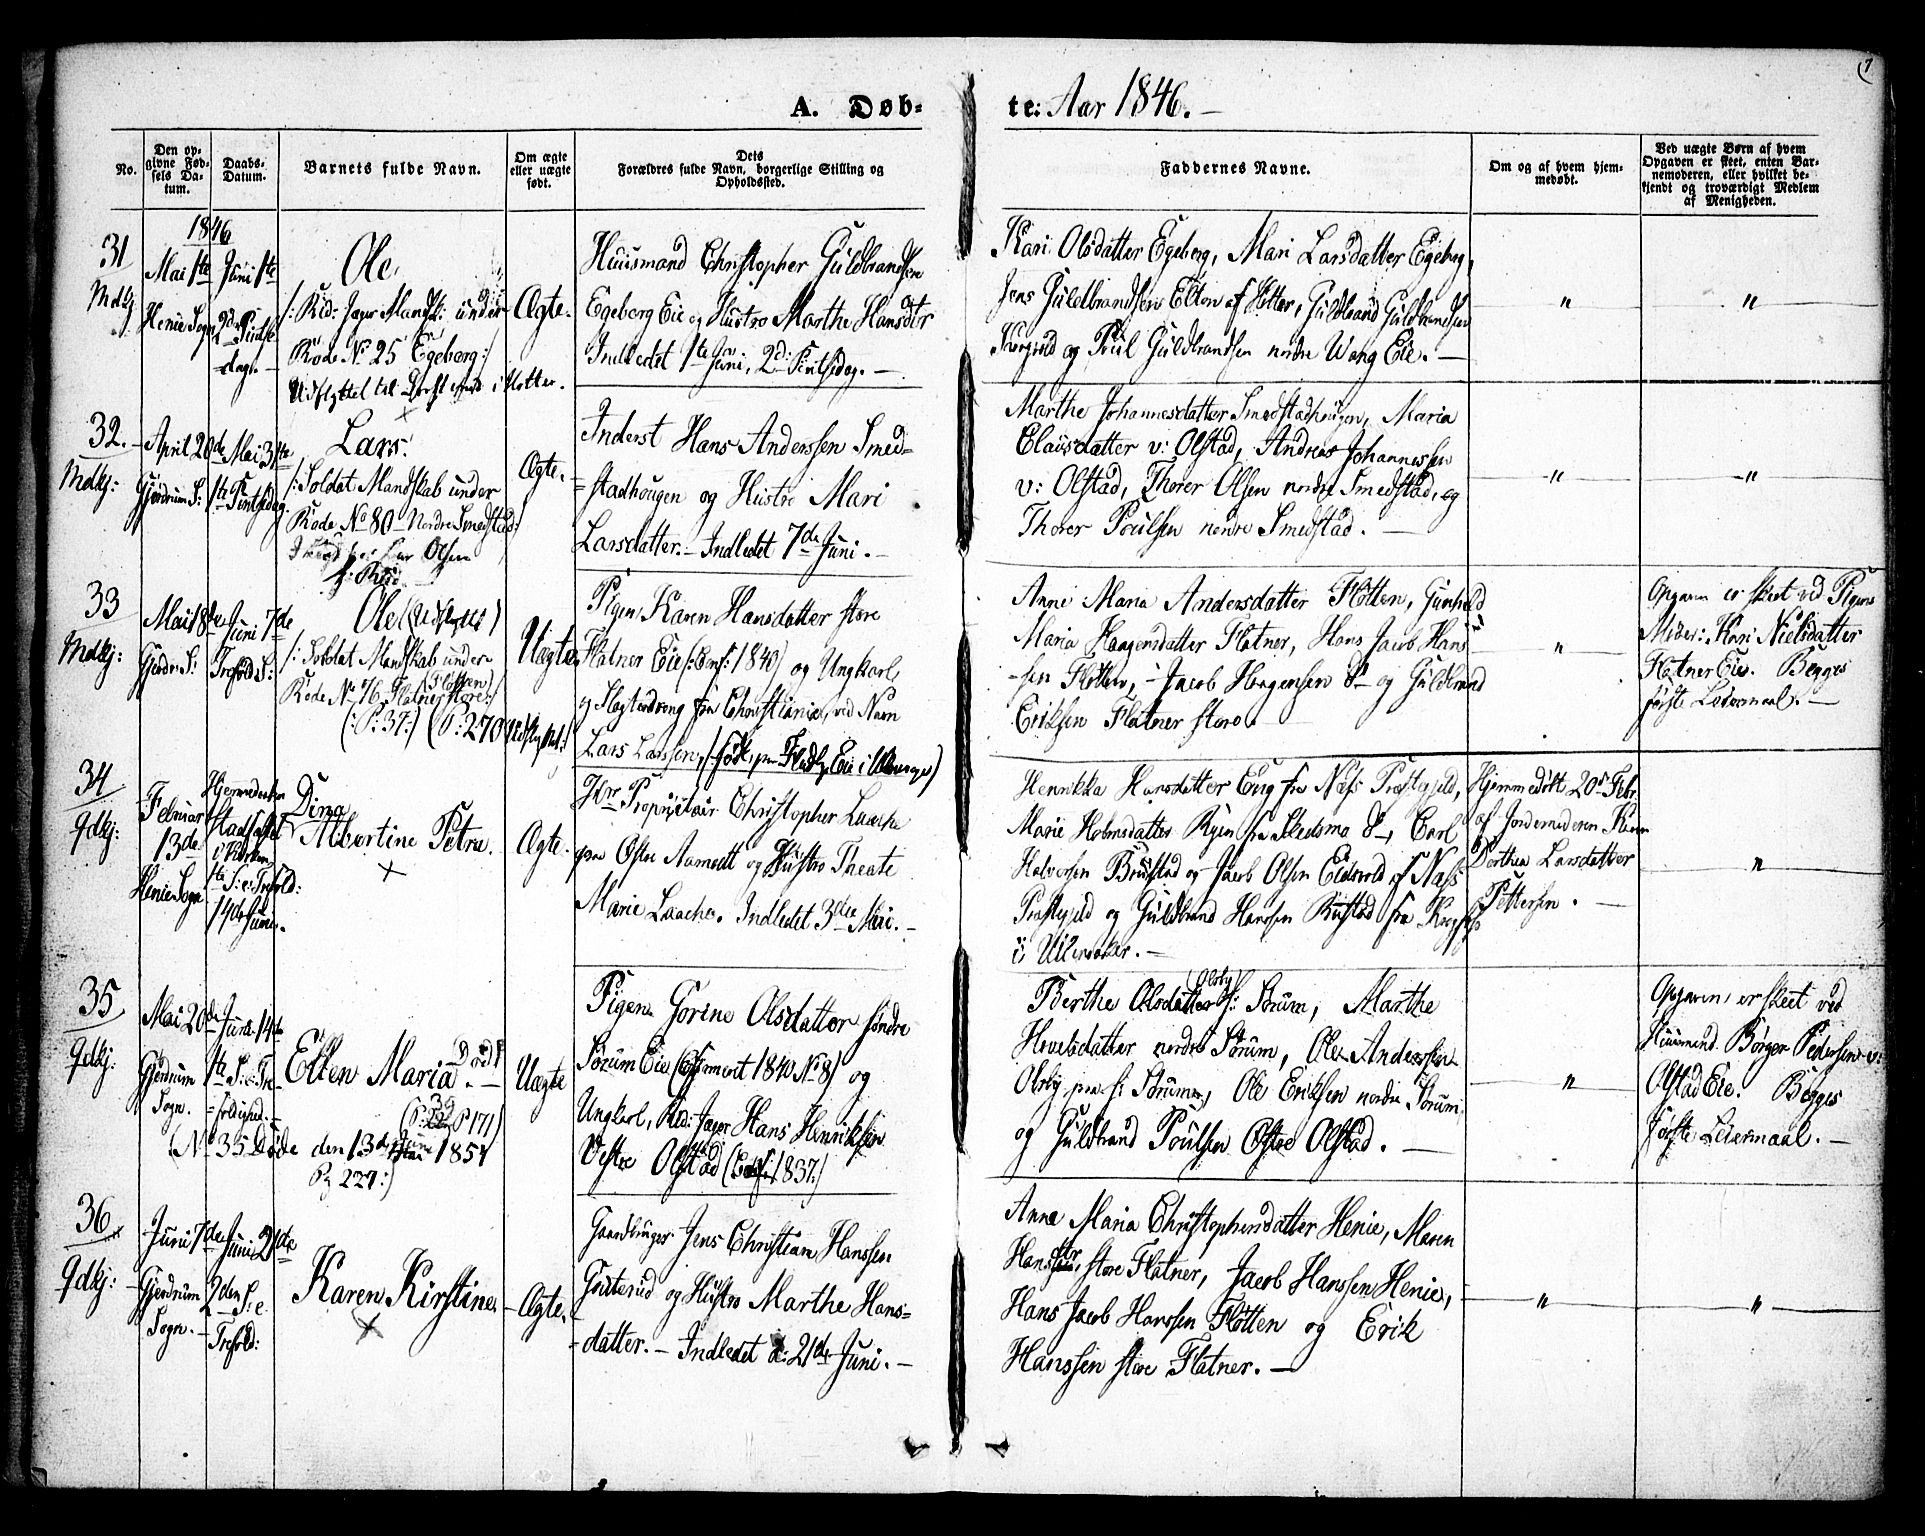 7
A. Døb-
te: Aar 1846.
No.
Den op-
givne Fød-
sels Da-
tum.
Daabs-
Datum.
Barnets fulde Navn.
Om ægte
eller uægte
født.
Dets
Forældres fulde Navn, borgerlige Stilling og
Opholdssted.
Faddernes Navne.
Om og af hvem hjem-
medøbt.
Ved uægte Børn af hvem
Opgaven er skeet, enten Bar-
nemoderen, eller hvilket be-
kjendt og troværdigt Medlem
af Menigheden.
1846
31
Mdkj
Mai 1ste
Henie Sogn
Juni 1ste
2den Pintse
dag. -
Ole
/: Rid: Jæger Mandsk: under
Rode No 25 Egeberg:/
Udflyttet til
Ægte.
Huusmand Christopher Guldbrandsen
Egeberg Eie og Hustro Marthe Hansdtr
Indledet 1ste Juni, 2d: Pintsedag. -
Kari Olsdatter Egeberg, Mari Larsdatter Egeberg,
Jens Guldbrandsen Elton af Holter, Guldbrand Guldbrandsen
og Poul Guldbrandsen nordre Wang Eie. -
"
"
32.
Mdkj:
April 20de
Gjerdrum S:
Mai 31te
1ste Pintsedag.
Lars.
/: Soldat Mandskab under
Rode No 80 Nordre Smedstad:/
Olsen
Ægte.
Inderst Hans Anderssen Smed-
stadhougen og Hustro Mari
Larsdatter. - Indledet 7de Juni. -
Marthe Johannesdatter Smedstadhougen, Maria
Clausdatter v: Olstad, Andreas Johannessen
v: Olstad, Thorer Olsen nordre Smedstad, og
Thorer Poulsen nordre Smedstad. -
"
"
33
Mdkj:
Mai 18de
Gjerdr: S:
Juni 7de
Trefold: S:
Ole
/: Soldat Mandskab under
Rode No 76 Flatner store:/
(Flotten)
(:P: 37:) (P: 270
Uægte
Pigen Karen Hansdatter store
Flatner Eie (:Conf: 1840) og Ungkarl,
fra Christiania, ved Navn
Lars Larssen,
Anne Maria Andersdatter Flotten, Gunhild
Maria Haagensdatter Flatner, Hans Jacob Hans-
sen Flotten, - Jacob Haagensen do og Guldbrand
Eriksen Flatner store. -
"
Opgaven er skeet ved Pigens
Moder: Kari Nielsdatter
Flatner Eie. Begges
første Leiermaal. -
34
Qdkj:
Februar
13de
Henie Sogn
Hjemmedaaben
stadfæstet
i Kirken
1ste S: e: Trefold:
14de Juni.
Dina
Albertine Petra.
Ægte.
Hr: Proprietair Christopher Laache
paa Østre Aamodt og Hustro Theate
Marie Laache. Indledet 3die Mai. -
Henrikka Hansdatter Eng fra Næss Præstegjeld,
Marie Halvorsdatter Ryen fra Skedsmo do, Carl
Halvorsen Brustad og Jacob Olsen Eidsvold af Næss
Præstegjeld og Guldbrand Hanssen Rustad fra
i Ullensaker. -
Hjemmedøbt 20de Febr.
af Jordemoderen Karen
Dorthea Larsdatter
Pettersen. -
"
35
Qdkj:
Mai 20de
Gjerdrum
Sogn.
Juni 14de
1ste S: e: Tre-
foldighed. -
Ellen Maria. -
Død
P 171)
(No 35 Døde den 13de 1857
Pg 227:)
Uægte
Pigen Gorine Olsdatter søndre
Sørum Eie (Confirmeret 1840 No 8) og
Ungkarl, Rid: Jæger Hans Henriksen
Vestre Olstad (Conf: 1837:)
Berthe Olsdatter (Olsby) s: Sørum, Marthe
Hovelsdatter nordre Sørum, Ole Anderssen
Olsby paa s: Sørum, Ole Eriksen nordre Sørum
og Guldbrand Poulsen Østre Olstad. -
"
Opgaven er skeet ved
Huusmand Børger Pedersen v:
Olstad Eie. Begges
første Leiermaal. -
36
Qdkj:
Juni 7de
Gjerdrum
Sogn. -
Juni 21de
2den S: e
Trefold:
Karen Kirstine
Ægte.
Gaardbruger Jens Christian Hanssen
Gusterud og Hustro Marthe Hans-
datter. - Indledet d: 21de Juni. -
Anne Maria Christophersdatter Henie, Maren
Hansdtr store Flatner, Jacob Hanssen Henie,
Hans Jacob Hanssen Flotten og Erik
Hanssen store Flatner. -
"
"